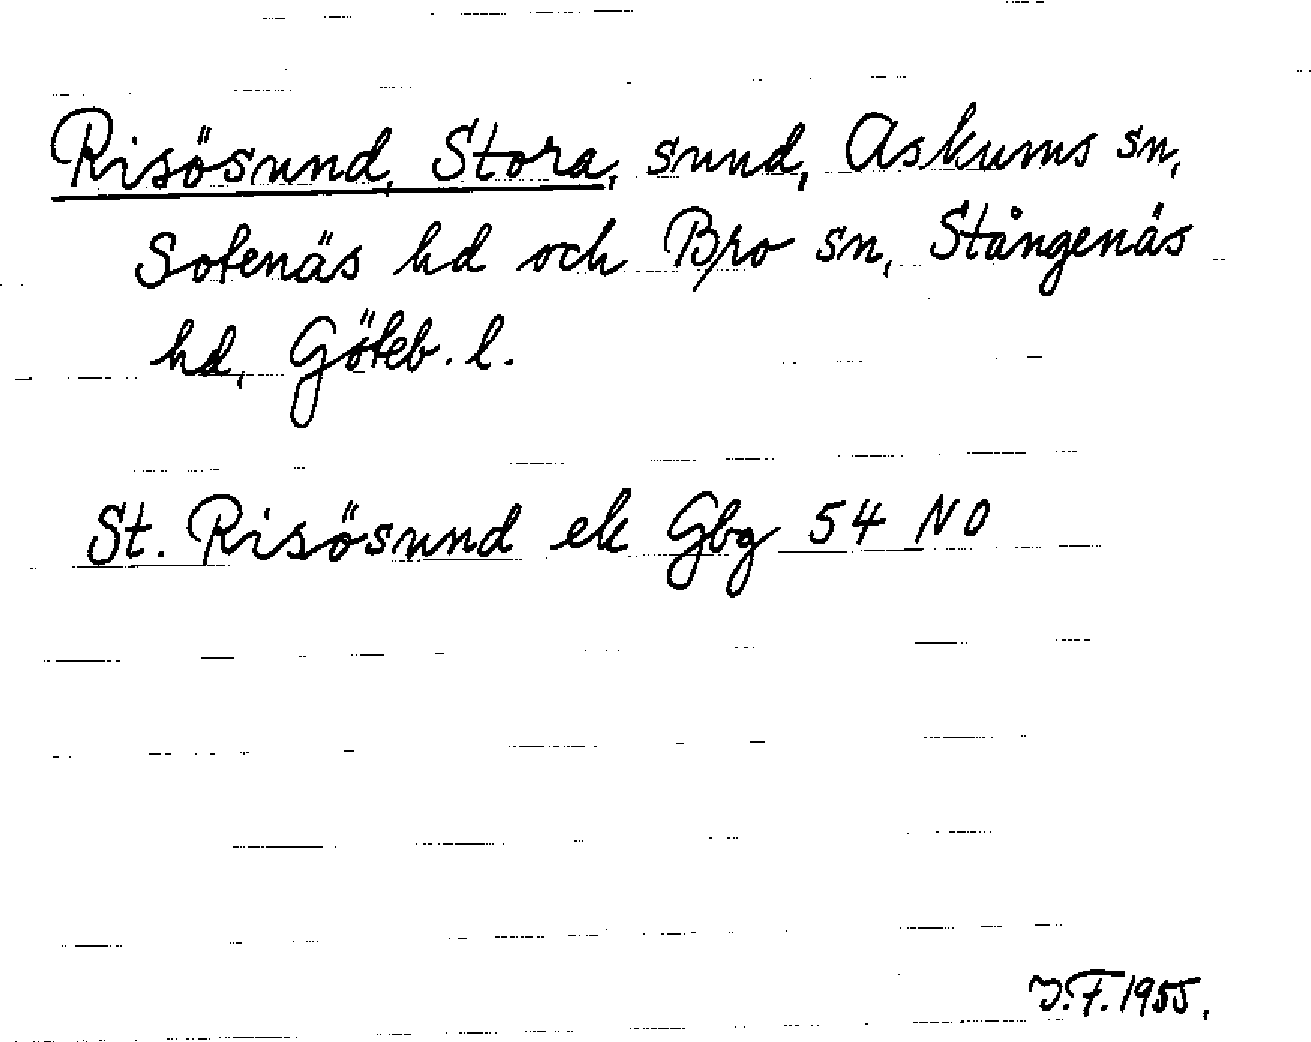 Risösund, Stora, sund, Askums sn,
Sotenäs hd och Bro sn, Stångenäs
hd, Göteb. l.
St. Risösund ek Gbg 54 NO
J.F. 1955.